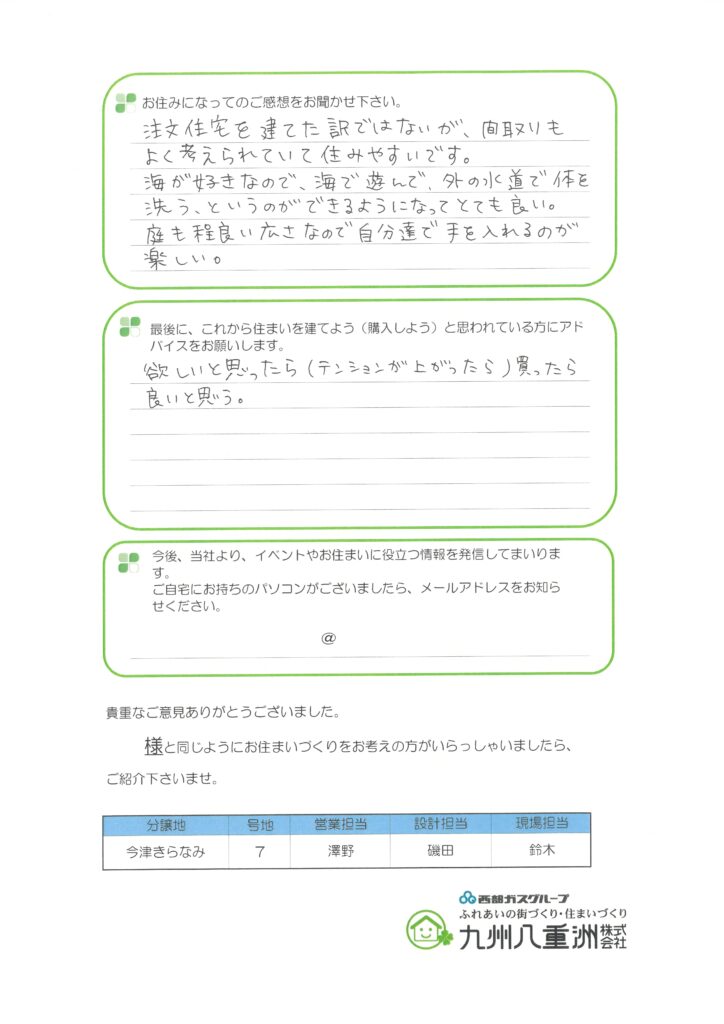 お住みになってのご感想をお聞かせ下さい。
注文住宅を建てた訳ではないが、間取りも
よく考えられていて住みやすいです。
海が好きなので、海で遊んで、外の水道で体を
洗う、というのができるようになってとても良い。
庭も程良い広さなので自分達で手を入れるのが
楽しい。
最後に、これから住まいを建てよう（購入しよう）と思われている方にアド
バイスをお願いします。
欲しいと思ったら(テンションが上がったら)買ったら
良いと思う。
今後、当社より、イベントやお住まいに役立つ情報を発信してまいりま
す。
ご自宅にお持ちのパソコンがございましたら、メールアドレスをお知ら
せください。
@
貴重なご意見ありがとうございました。
様と同じようにお住まいづくりをお考えの方がいらっしゃいましたら、
ご紹介下さいませ。
分譲地 号地 営業担当 設計担当 現場担当
今津きらなみ 7 澤野 磯田 鈴木
西部ガスグループ
ふれあいの街づくり・住まいづくり
九州八重洲株式会社